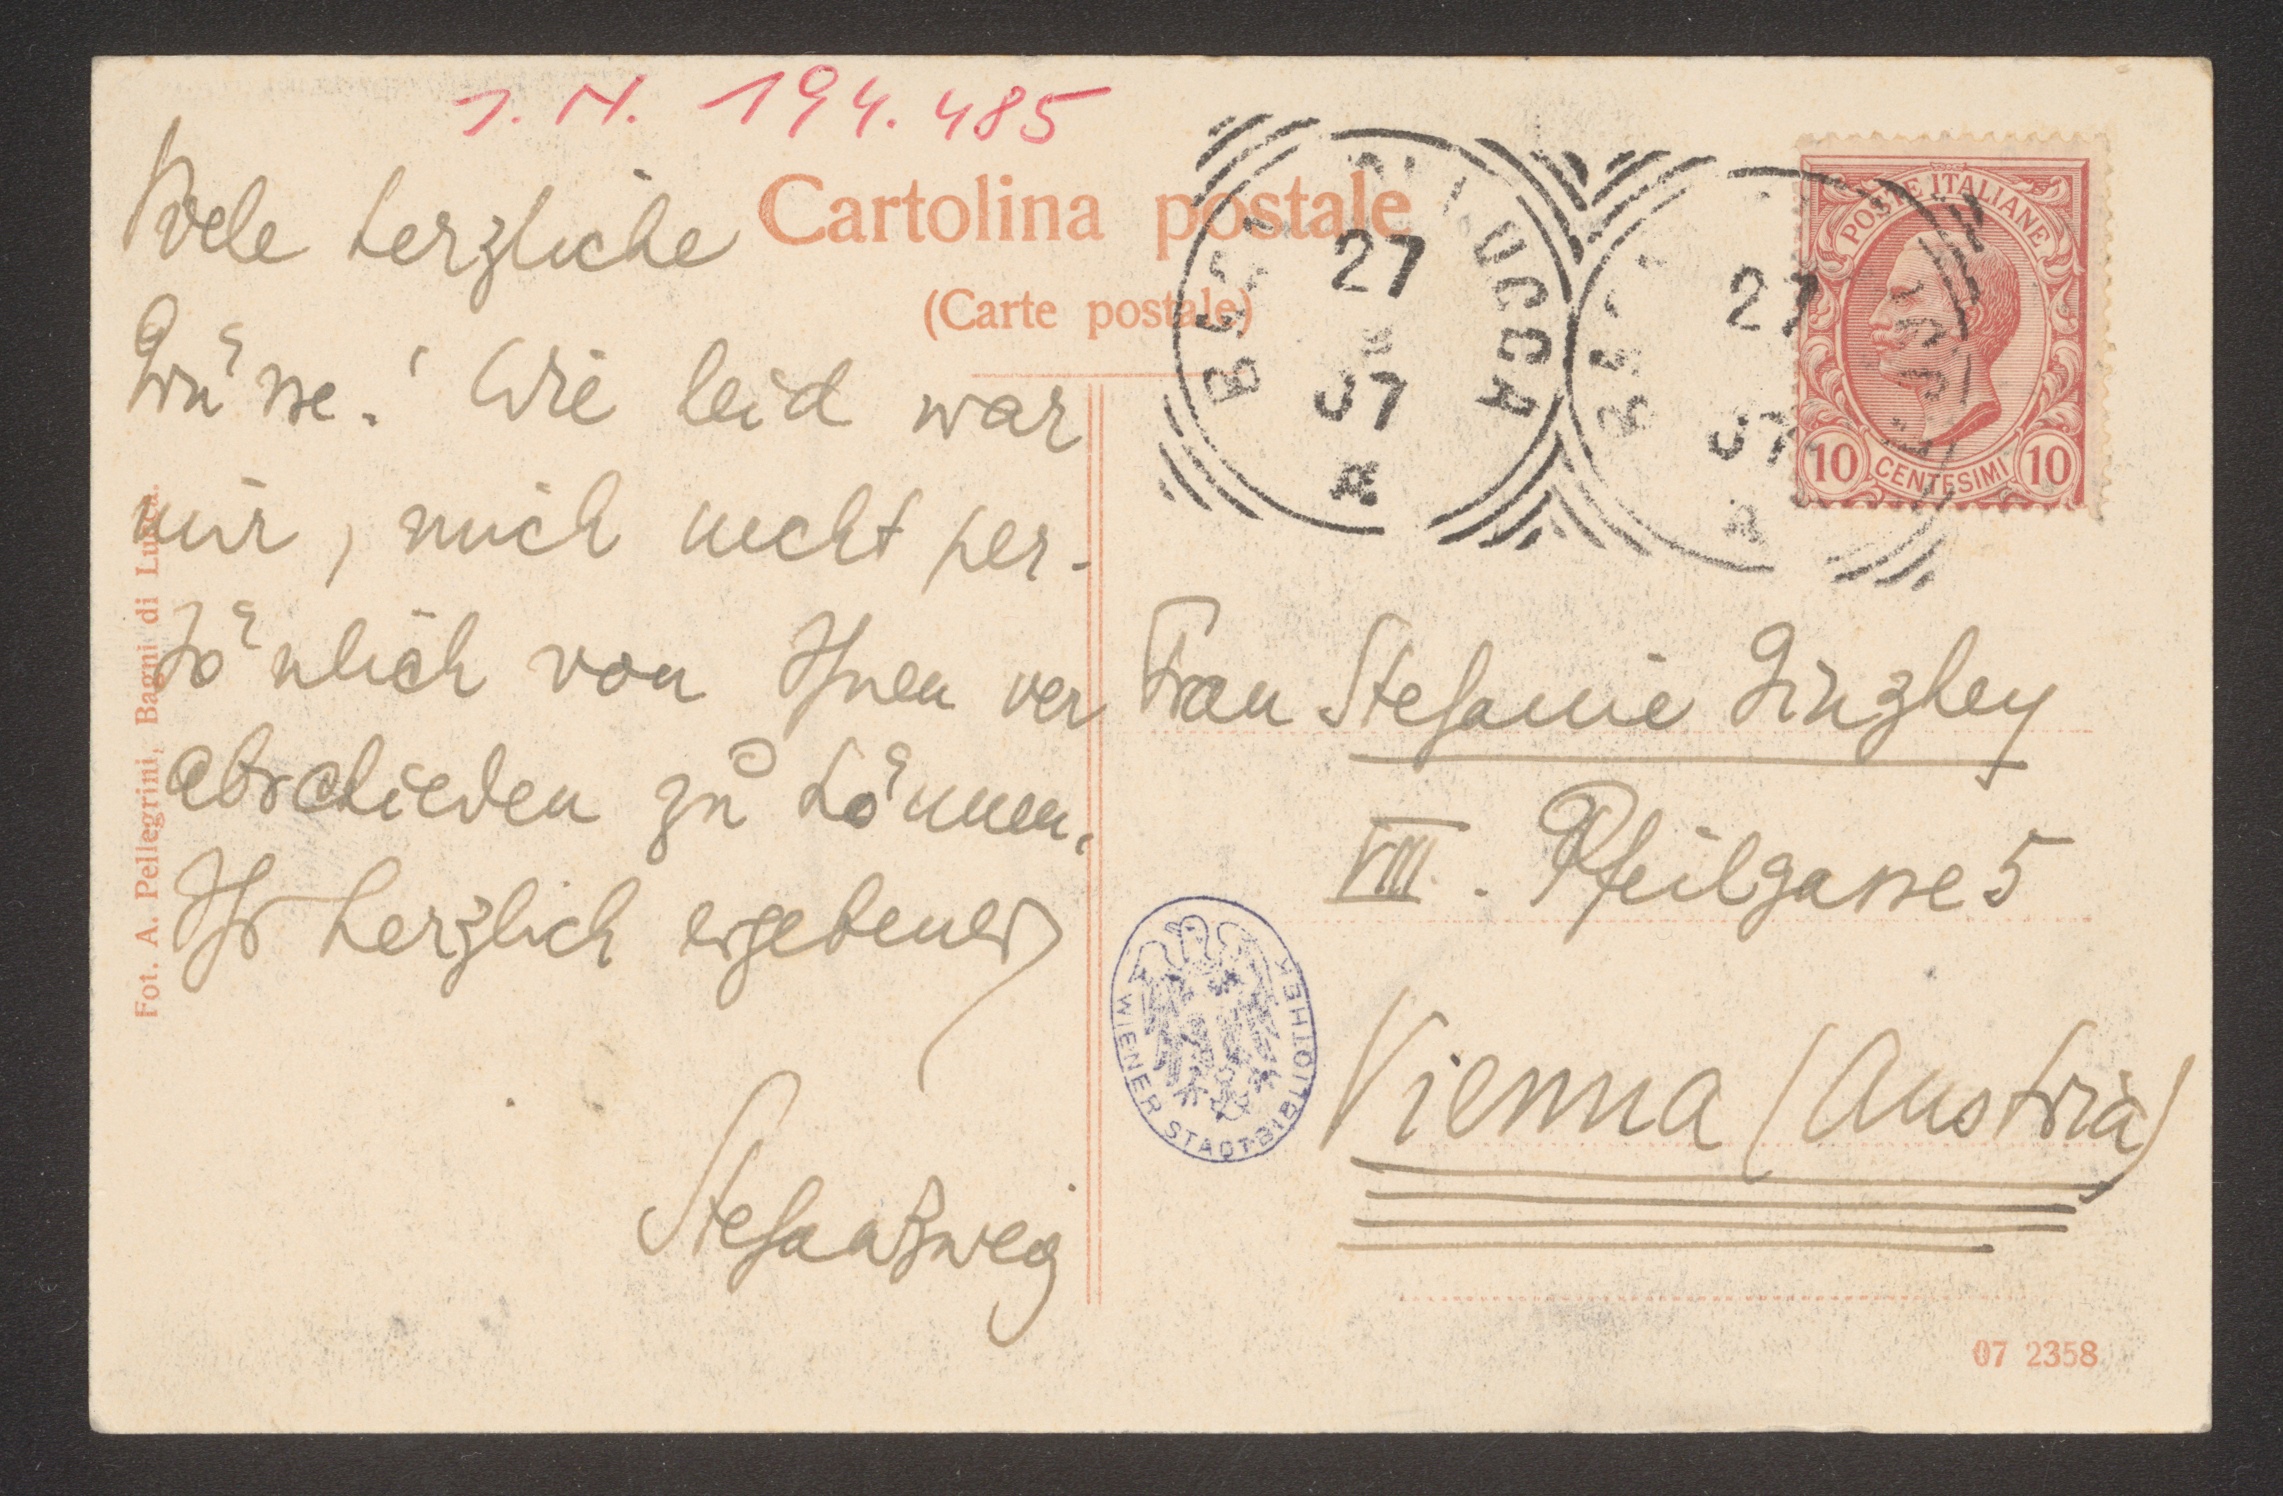 I. N. 194.485
Cartolina postale
(Carte postale)
Viele herzliche
Grüsse! Wie leid war
mir, mich nicht per-
sönlich von Ihnen ver
abschieden zu können.
Ihr herzlich ergebener
Stefan Zweig
Fot. A. Pellegrini, Bagni di Lucca.
27
07
27
07
POSTE ITALIANE
10 CENTESIMI 10
Frau Stefanie Ginzkey
VIII. Pfeilgasse 5
Vienna (Austria)
WIENER STADTBIBLIOTHEK
07 2358